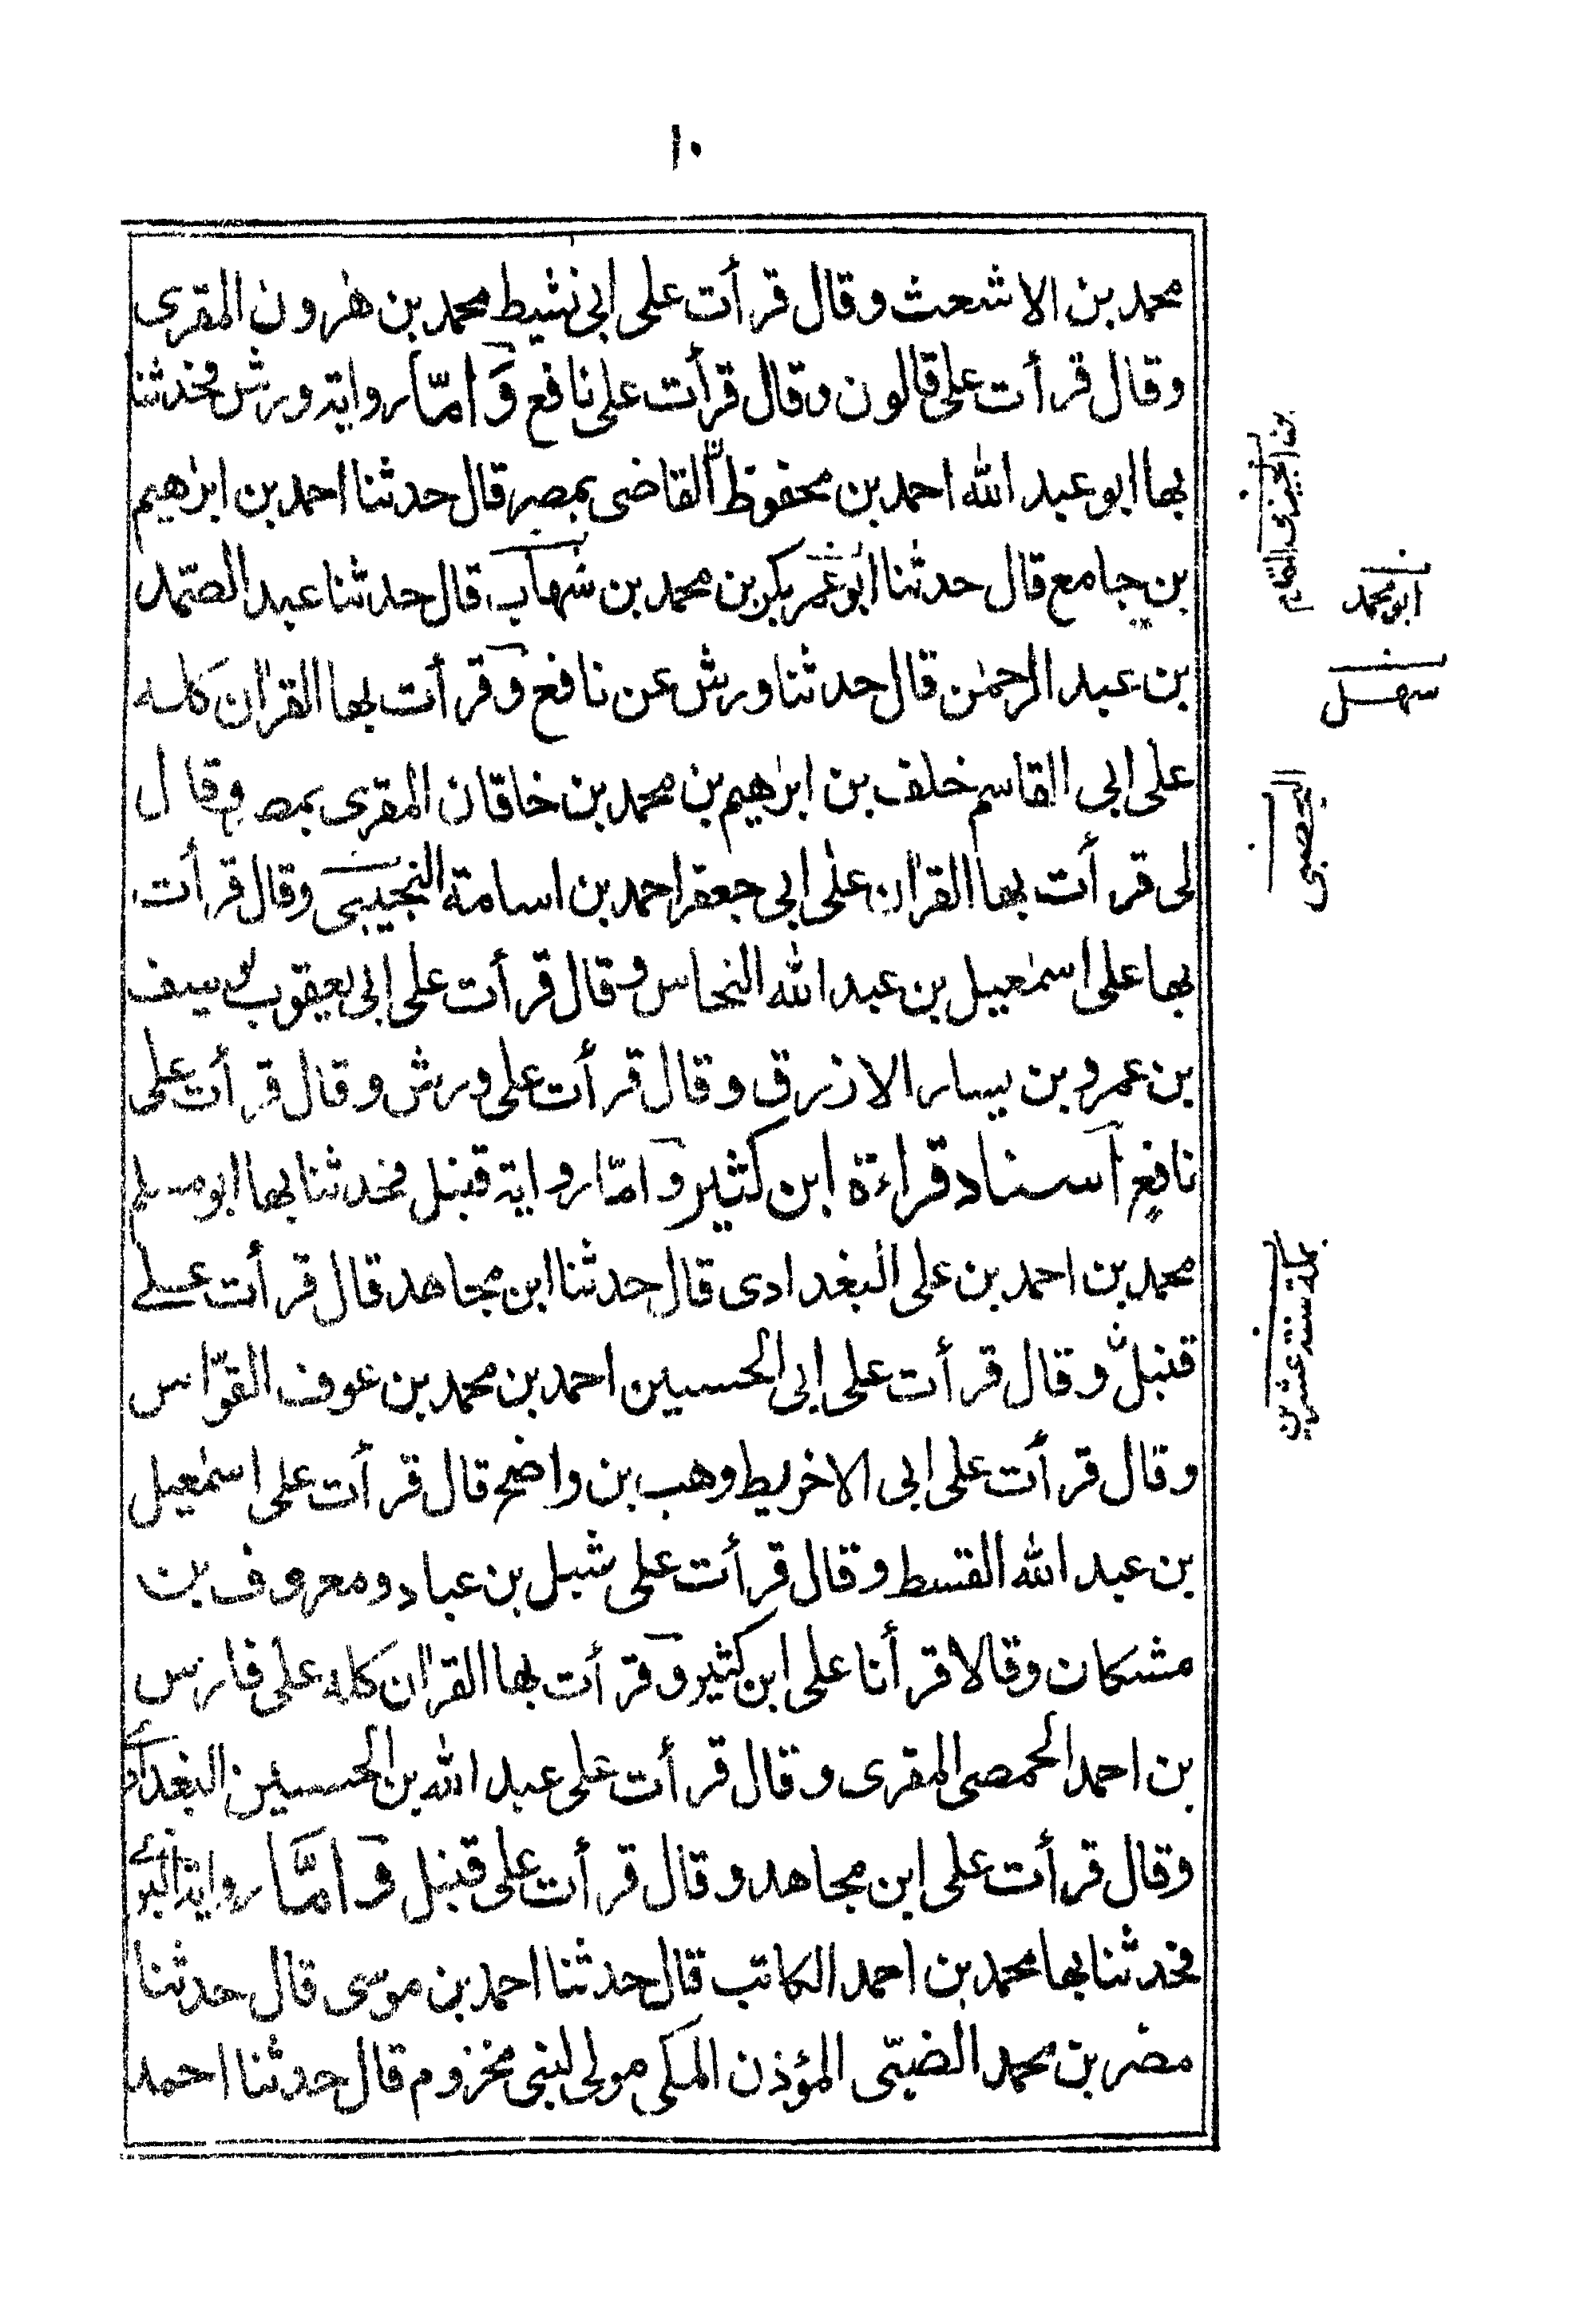 ١٠
محمد بن الاشعث وقال قرأت على ابى نشيط محمد بن هٰرون المقرى
وقال قرأت على قالون وقال قرأت على نافع وَامّا رواية ورش فحدثنا
بها ابو عبد الله احمد بن محفوظ القاضى بمصر قال حدثنا احمد بن ابرٰهيم
بن جامع قال حدثنا ابو عمر بكر بن محمد بن شهاب قال حدثنا عبد الصّمد
بن عبد الرحمٰن قال حدثنا ورش عن نافع وقرأت بها القراٰن كله
على ابى القاسم خلف بن ابرٰهيم بن محمد بن خاقان المقرى بمصر وقال
لى قرأت بها القراٰن على ابى جعفر احمد بن اسامة التجيبى وقال قرأت
بها على اسمٰعيل بن عبد الله النحاس وقال قرأت على ابى يعقوب يوسف
بن عمرو بن يسار الازرق وقال قرأت على ورش وقال قرأت على
نافعٍ اسناد قراءة ابن كثير وامّا رواية قنبل فحدثنا بها ابو مسلم
محمد بن احمد بن على البغدادى قال حدثنا ابن مجاهد قال قرأت على
قنبل وقال قرأت على ابى الحسين احمد بن محمد بن عوف القوّاس
وقال قرأت على ابى الاخريط وهب بن واضح قال قرأت على اسمٰعيل
بن عبد الله القسط وقال قرأت على شبل بن عباد ومعروف بن
مشكان وقالا قرأنا على ابن كثير وقرأت بها القراٰن كله على فارس
بن احمد الحمصى المقرى وقال قرأت على عبد الله بن الحسين البغدادى
وقال قرأت على ابن مجاهد وقال قرأت على قنبل وَامَّا رواية البزى
فحدثنا بها محمد بن احمد الكاتب قال حدثنا احمد بن موسى قال حدثنا
مضر بن محمد الضبّى المؤذن المكى مولى لبنى مخزوم قال حدثنا احمد
ابو محمد
سهل